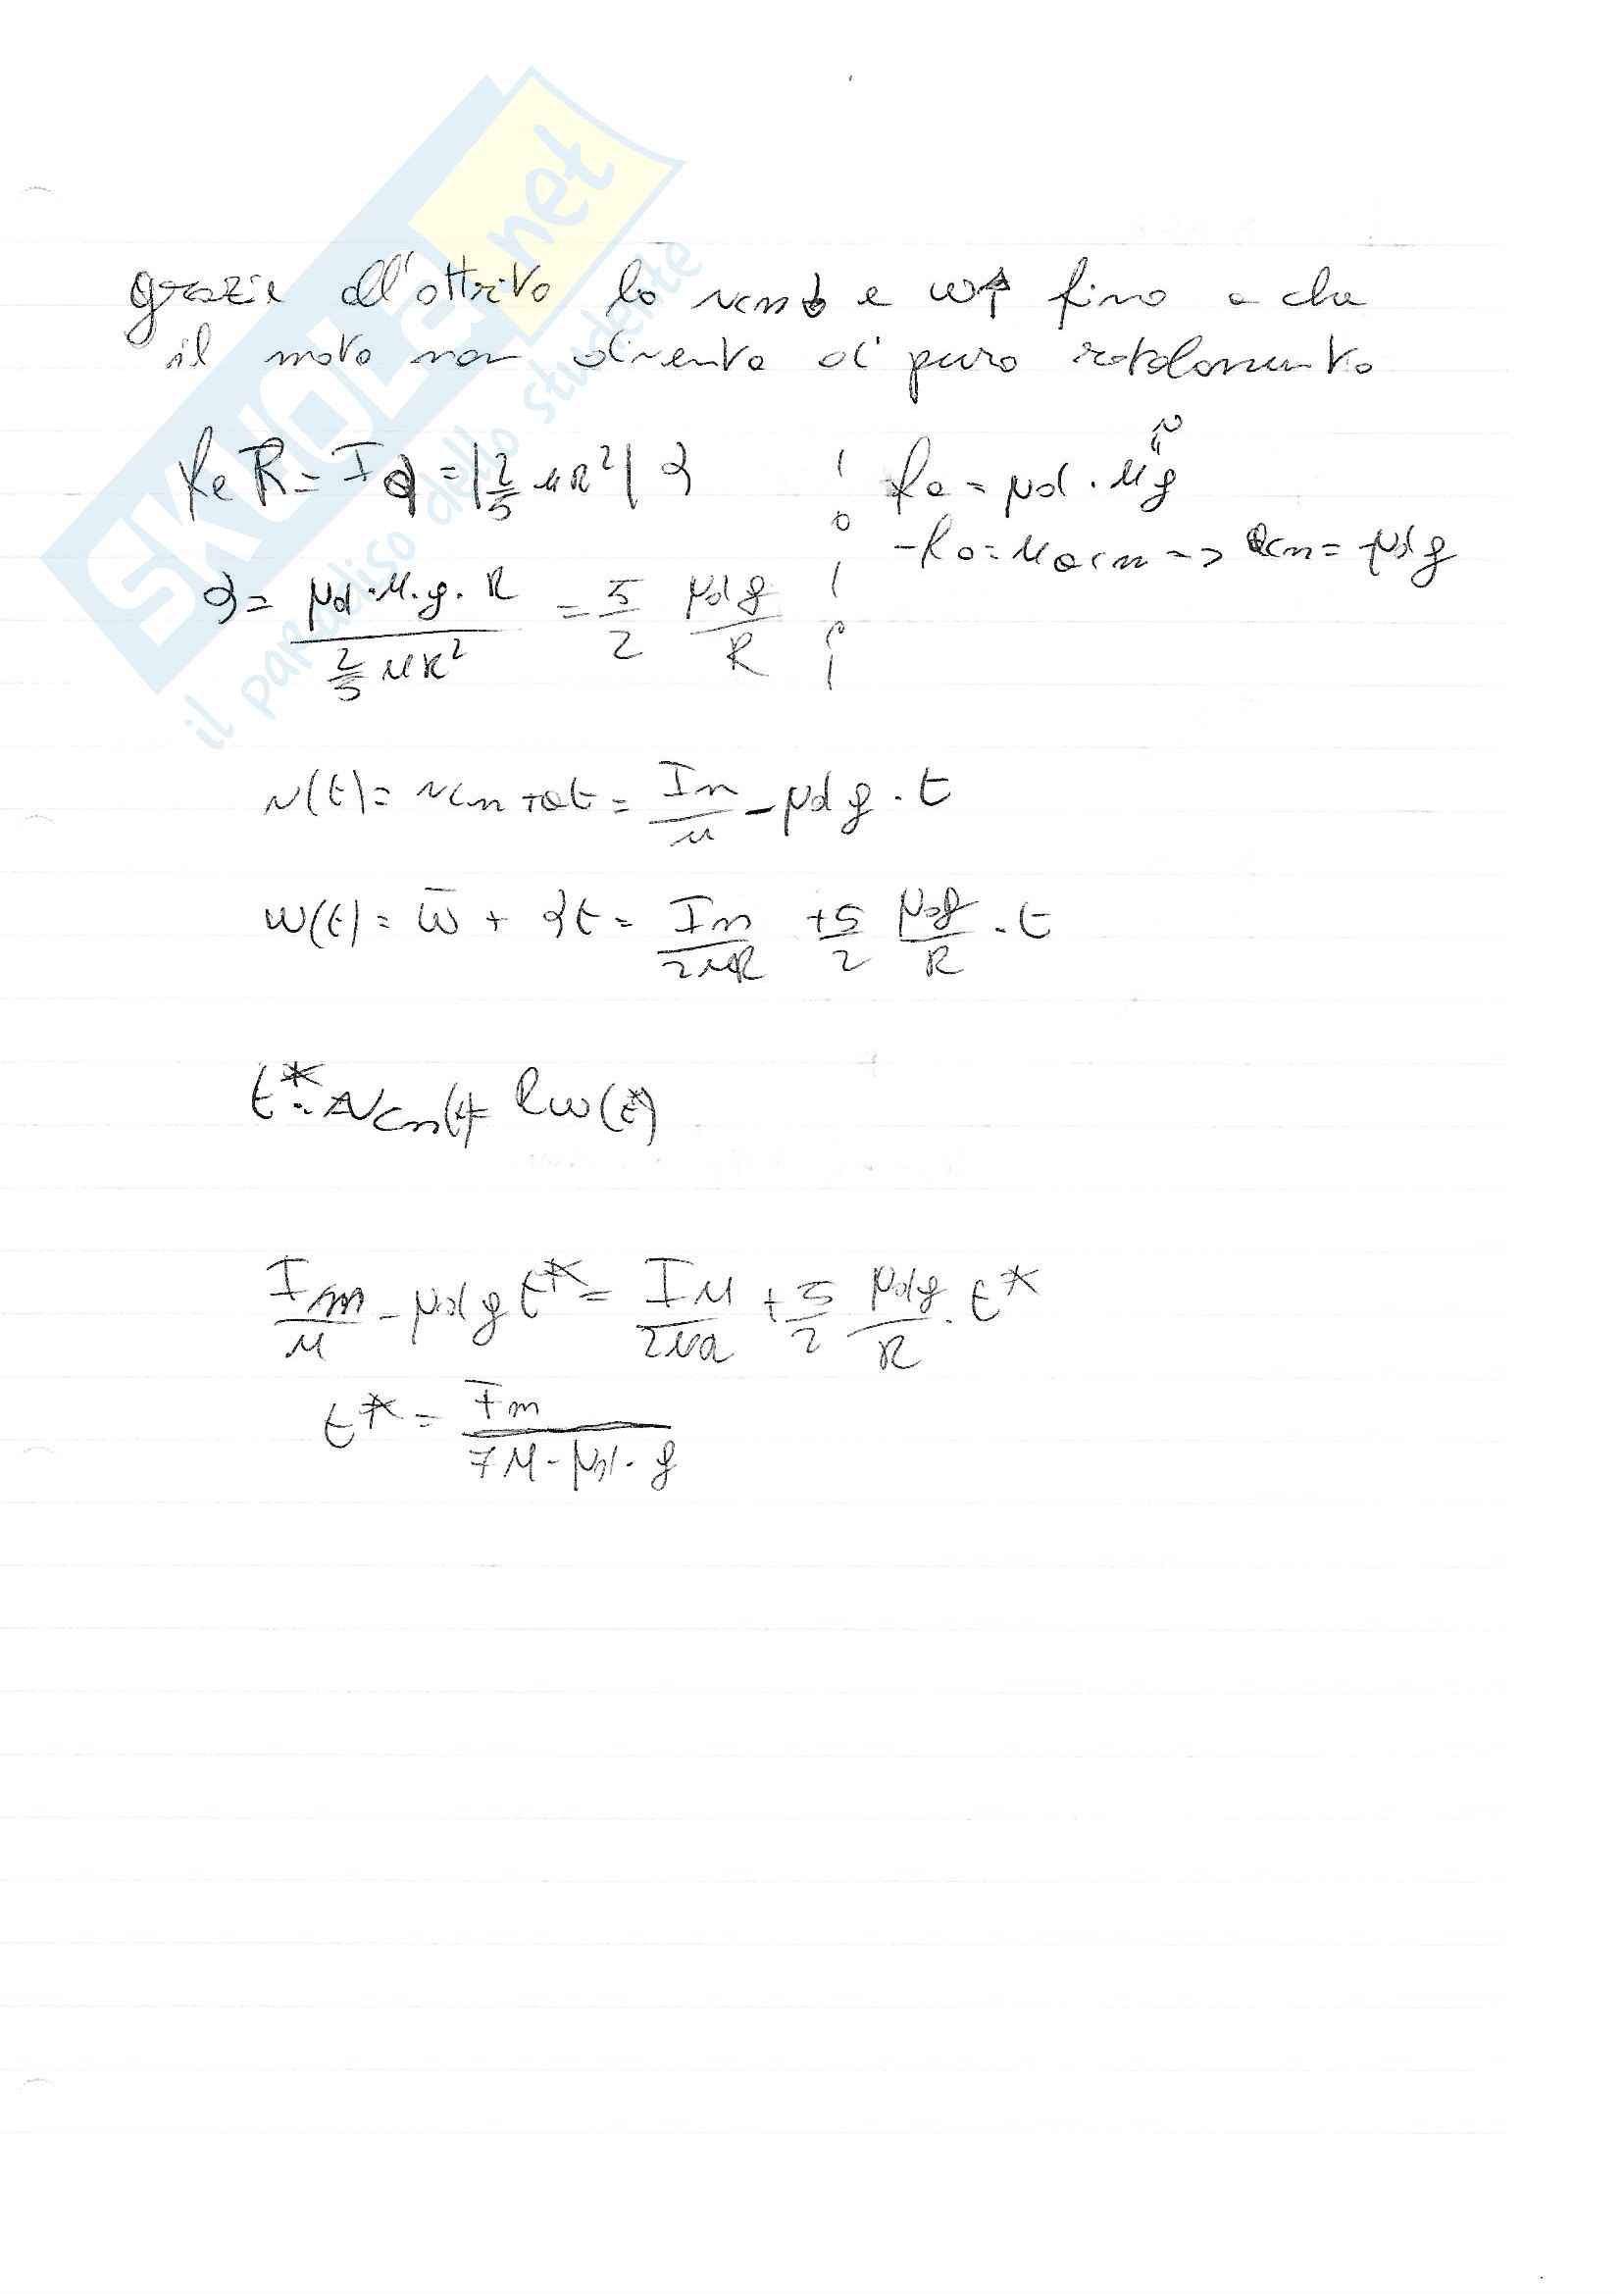 SKUOLA.net
il paradiso dello studente
grazie all'attrito la vcm↓ e ω↑ fino a che
il moto non diventa di puro rotolamento
fa R = Iα = |2/5 MR²| α
fa = μd · Mg
N
-fa = M acm -> acm = -μd g
α = μd · M · g · R / 2/5 MR² = 5/2 μd g / R
v(t) = vcm + at = Im/M - μd g · t
ω(t) = ω̄ + αt = Im/2MR + 5/2 μd g/R · t
t* : vcm(t) = Rω(t*)
Im/M - μd g t* = IM/2MR + 5/2 μd g/R · t*
t* = Im / 7M · μd · g